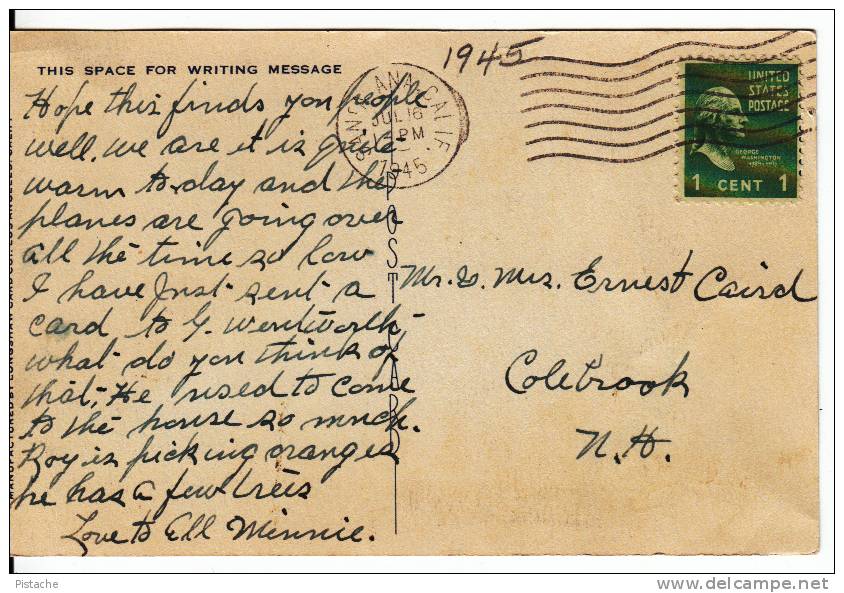 1945
THIS SPACE FOR WRITING MESSAGE
Hope this finds you people
well, we are it is quite
warm to-day and the
planes are going over
all the time so low
I have Just sent a
card to G. Wentworth,
what do you think of
that, He used to come
to the house so much.
Roy is picking oranges
he has a few trees
Love to Ell Minnie.
CALIF.
JUL 16
PM
1945
POST CARD
UNITED
STATES
POSTAGE
GEORGE
WASHINGTON
1 CENT 1
Mr. & Mrs. Ernest Caird
Colebrook
N.H.
Pistache
delcampe.net